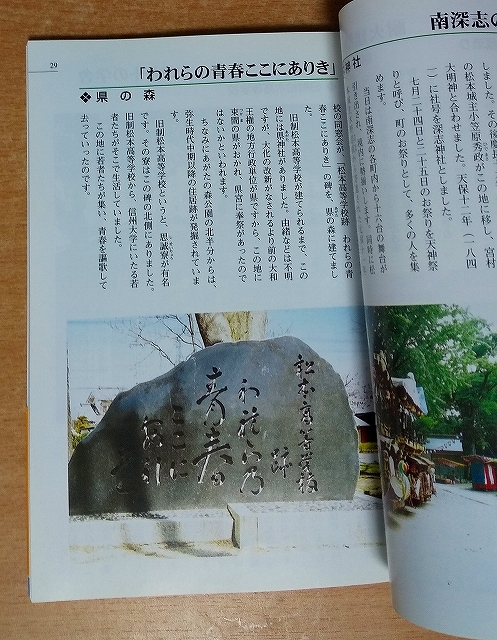 29
「われらの青春ここにありき」
❖ 県の森
校の同窓会が「松本高等学校跡 われらの青
春ここにありき」の碑を、県の森に建てまし
た。
旧制松本高等学校が建てられるまで、この
地には県神社がありました。由緒などは不明
ですが、大化の改新がなされるより前の大和
王権の地方行政単位が県ですから、この地に
束間の県がおかれ、県宮に奉祭があったので
はないかといわれます。
ちなみにあがたの森公園の北半分からは、
弥生時代中期以降の住居跡が発掘されていま
す。
旧制松本高等学校というと、思誠寮が有名
です。その寮はこの碑の北側にありました。
旧制松本高等学校から、信州大学にいたる若
者たちがそこで生活していました。
この地に若者たちが集い、青春を謳歌して
去っていったのです。
松本高等学校
跡
われらの
青春
ここに
ありき
南深志の
神社
しました。その
の松本城主小笠原秀政がこの地に移し、宮村
大明神と合わせました。天保十二年（一八四
一）に社号を深志神社としました。
七月二十四日と二十五日のお祭りを天神祭
りと呼び、町のお祭りとして、多くの人を集
めます。
当日は南深志の各町内から十六台の舞台が